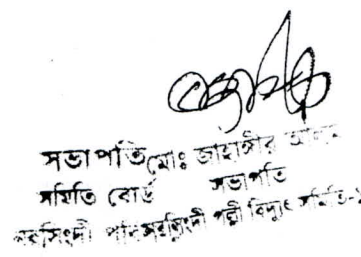 সভাপতি মোঃ জাহাঙ্গীর আলম
সমিতি বোর্ড সভাপতি
নরসিংদী পবিস নরসিংদী পল্লী বিদ্যুৎ সমিতি-১